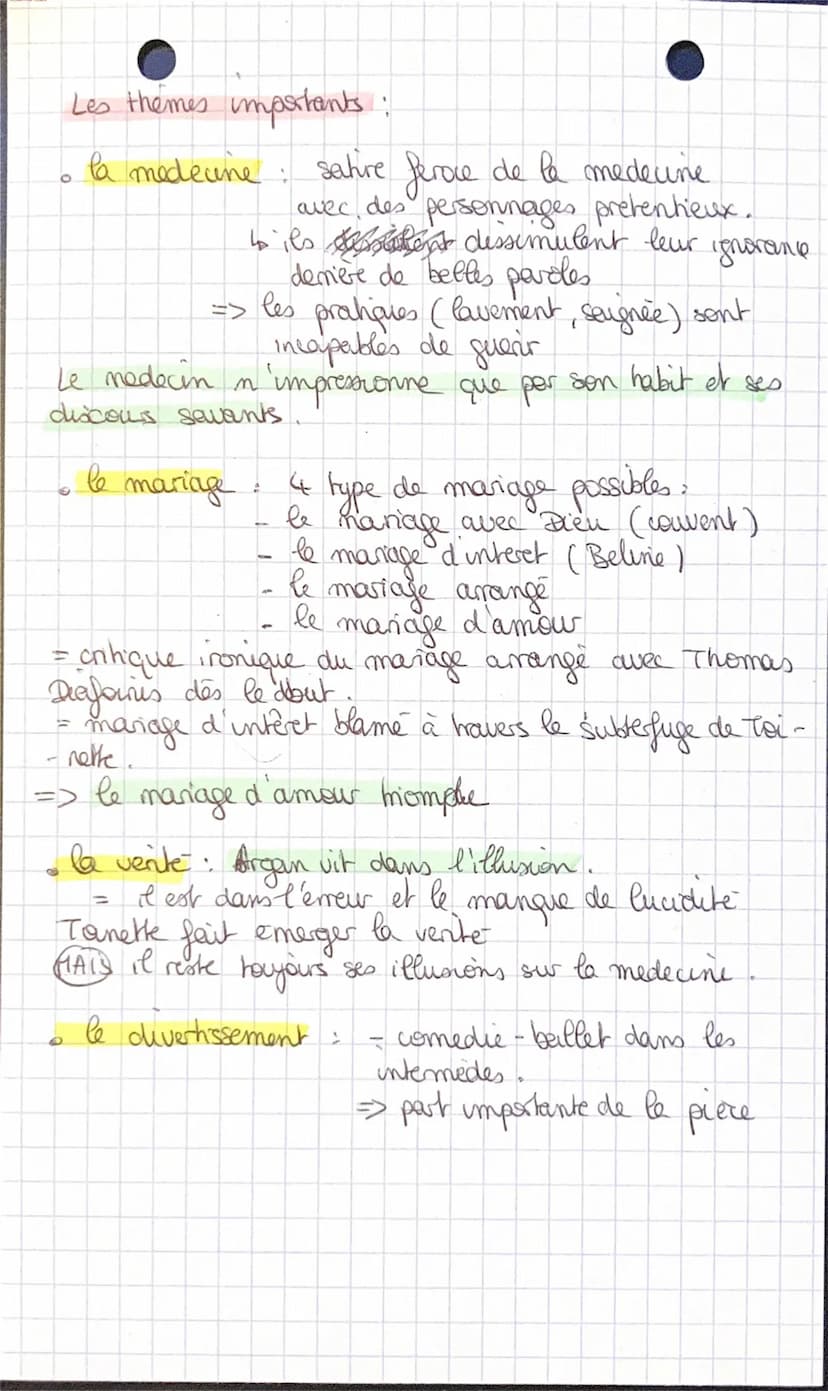 Les thèmes importants :
• la medecine : satire feroce de la medecine
avec des personnages pretentieux.
↳ ils dissimulent leur ignorance
derrière de belles paroles
=> les pratiques (lavement, saignée) sont
incapables de guerir
Le medecin n'impressionne que par son habit et ses
discous savants.
• le mariage : 4 type de mariage possibles :
- le mariage avec Dieu (couvent)
- le mariage d'interet (Beline)
- le mariage arrangé
- le mariage d'amour
= critique ironique du mariage arrangé avec Thomas
Diafoirus dès le debut.
= mariage d'intêret blamé à travers le subterfuge de Toi-
-nette.
=> le mariage d'amour triomphe
• la verité : Argan vit dans l'illusion.
= il est dans l'erreur et le manque de lucidité
Toinette fait emerger la verité
MAIS il reste toujours ses illusions sur la medecine.
• le divertissement : - comedie-ballet dans les
intermèdes.
=> part importante de la pièce